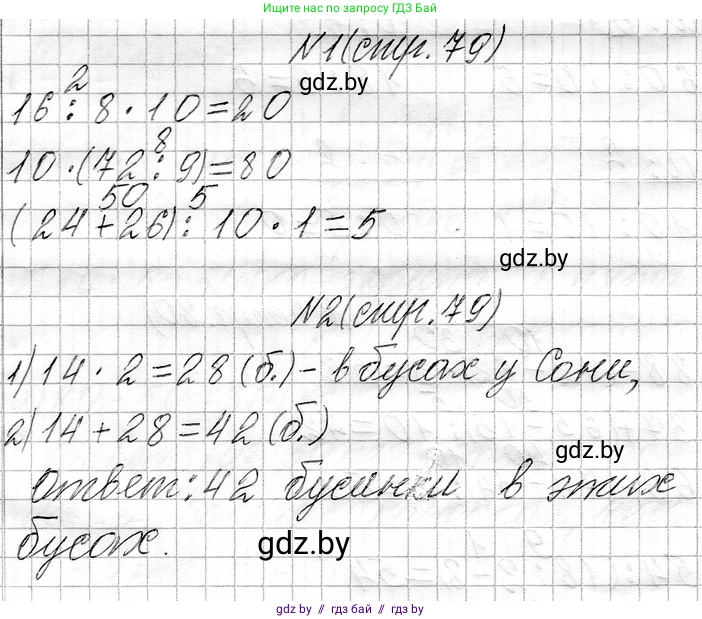 Ищите нас по запросу ГДЗ Бай
N1(стр. 79)
gdz.by
2
16 : 8 · 10 = 20
8
10 · (72 : 9) = 80
50 5
(24 + 26) : 10 · 1 = 5
gdz.by
N2(стр. 79)
1) 14 · 2 = 28 (б.) - в бусах у Сони,
2) 14 + 28 = 42 (б.)
gdz.by
Ответ: 42 бусинки в этих
бусах.
gdz.by
gdz by // гдз бай // gdz by